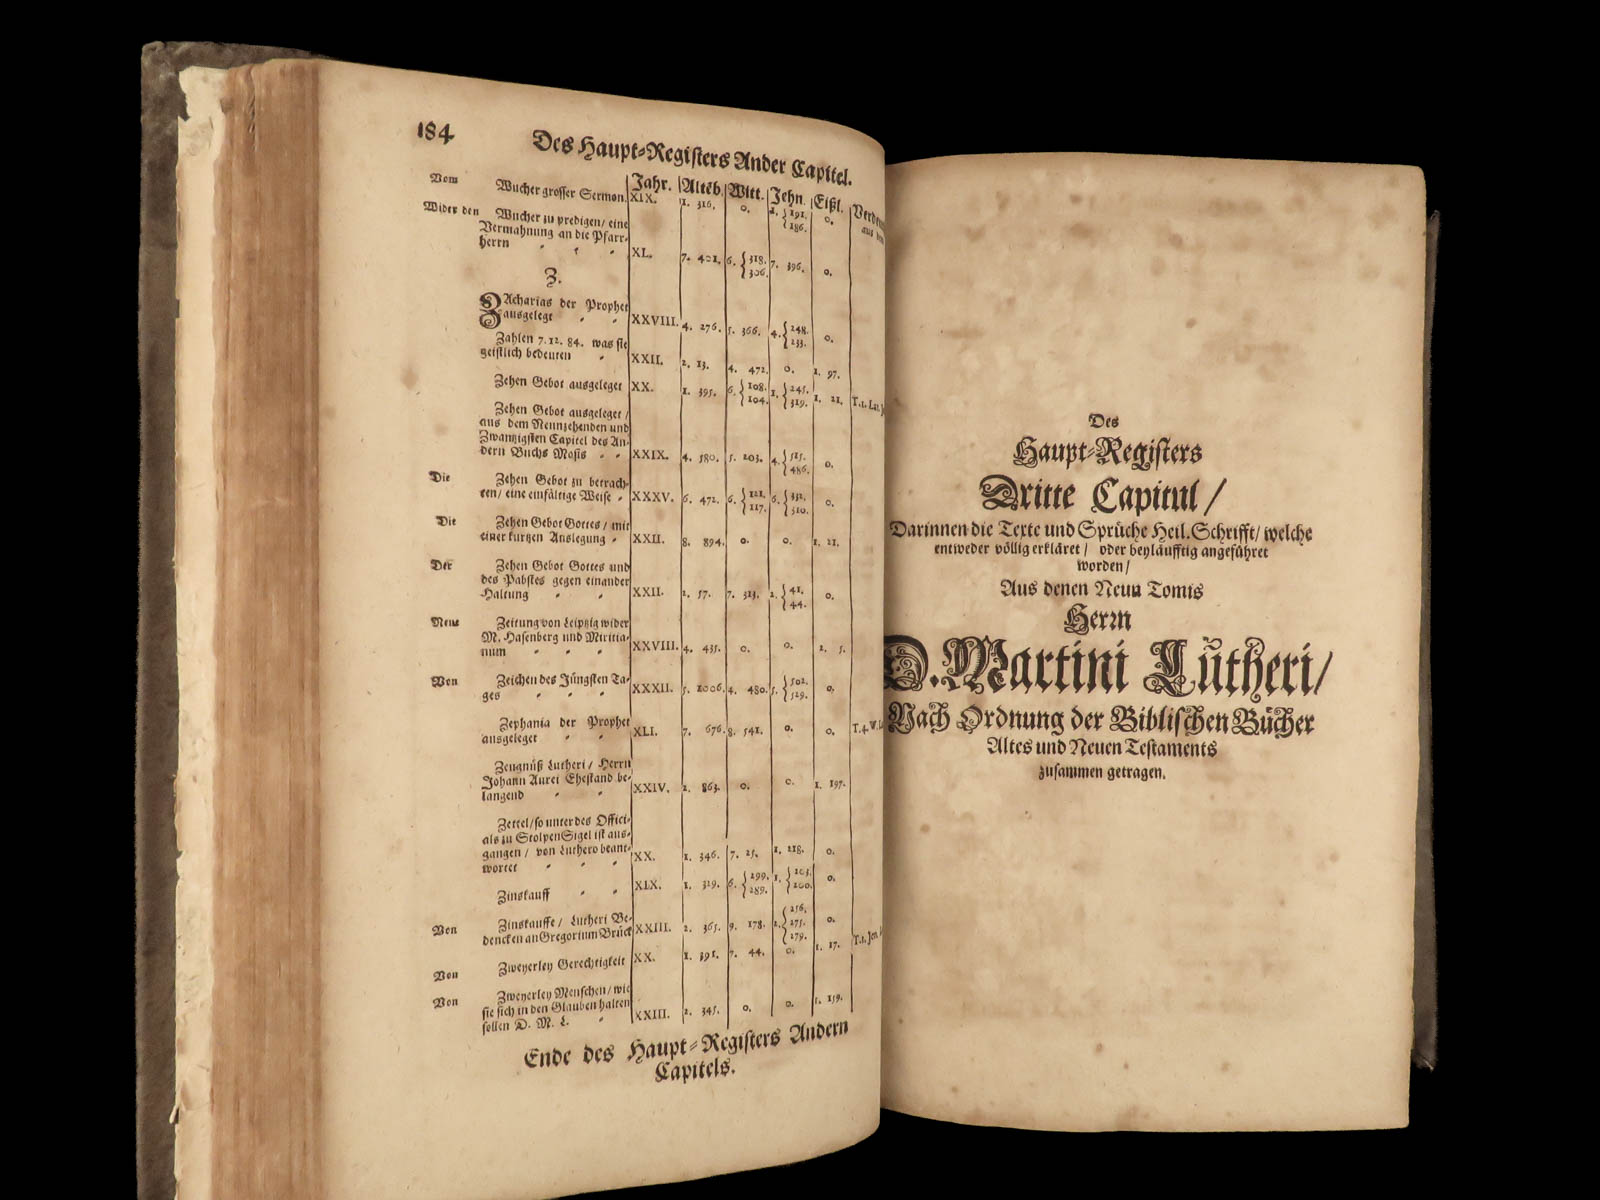 184
Des Haupt-Registers Ander Capitel.
Jahr. Altēb. Witt. Jehn. Eißl.
Vom Wucher grosser Sermon. XIX. 1. 316. 0. 1. {191. 186. 0.
Wider den Wucher zu predigen / eine
Vermahnung an die Pfarr-
herrn XL. 7. 401. 6. {318. 306. 7. 396. 0.
Z.
ZAcharias der Prophet
ausgelegt XXVIII. 4. 276. 5. 366. 4. {248. 233. 0.
Zahlen 7. 12. 84. was sie
geistlich bedeuten XXII. 2. 13. 4. 472. 0. 1. 97.
Zehen Gebot ausgeleget XX. 1. 395. 6. {108. 104. 1. {245. 319. 1. 21.
Zehen Gebot ausgeleget /
aus dem Neunzehenden und
Zwantzigsten Capitel des An-
dern Buchs Mosis XXIX. 4. 580. 5. 203. 4. {525. 486. 0.
Die Zehen Gebot zu betrach-
ten / eine einfältige Weise XXXV. 6. 472. 6. {121. 117. 6. {332. 310. 0.
Die Zehen Gebot Gottes / mit
einer kurtzen Auslegung XXII. 8. 894. 0. 0. 1. 21.
Der Zehen Gebot Gottes und
des Pabstes gegen einander
Haltung XXII. 2. 57. 7. 313. 2. {41. 44. 0.
Neue Zeitung von Leipzig wider
M. Hasenberg und Miritia-
num XXVIII. 4. 435. 0. 0. 2. 5.
Von Zeichen des Jüngsten Ta-
ges XXXII. 5. 1006. 4. 480. 5. {502. 529. 0.
Zephania der Prophet
ausgeleget XLI. 7. 676. 8. 541. 0. 0.
Zeugnüß Lutheri / Herrn
Johann Aurei Ehestand be-
langend XXIV. 2. 863. 0. 0. 1. 197.
Zettel / so unter des Offici-
als zu Stolpen Sigel ist aus-
gangen / von Luthero beant-
wortet XX. 1. 346. 7. 25. 1. 218. 0.
Zinskauff XIX. 1. 329. 6. {299. 289. 1. {203. 200. 0.
Von Zinskauffe / Lutheri Be-
dencken an Gregorium Brück XXIII. 2. 365. 9. 178. 2. {256. 275. 279. 0.
Von Zweyerley Gerechtigkeit XX. 1. 391. 7. 44. 0. 1. 17.
Von Zweyerley Menschen / wie
sie sich in den Glauben halten
sollen D. M. L. XXIII. 2. 345. 0. 0. 1. 159.
Ende des Haupt-Registers Andern
Capitels.
Des
Haupt-Registers
Dritte Capitul /
Darinnen die Texte und Sprüche Heil. Schrifft / welche
entweder völlig erkläret / oder beyläufftig angeführet
worden /
Aus denen Neun Tomis
Herrn
D. Martini Lutheri /
Nach Ordnung der Biblischen Bücher
Altes und Neuen Testaments
zusammen getragen.